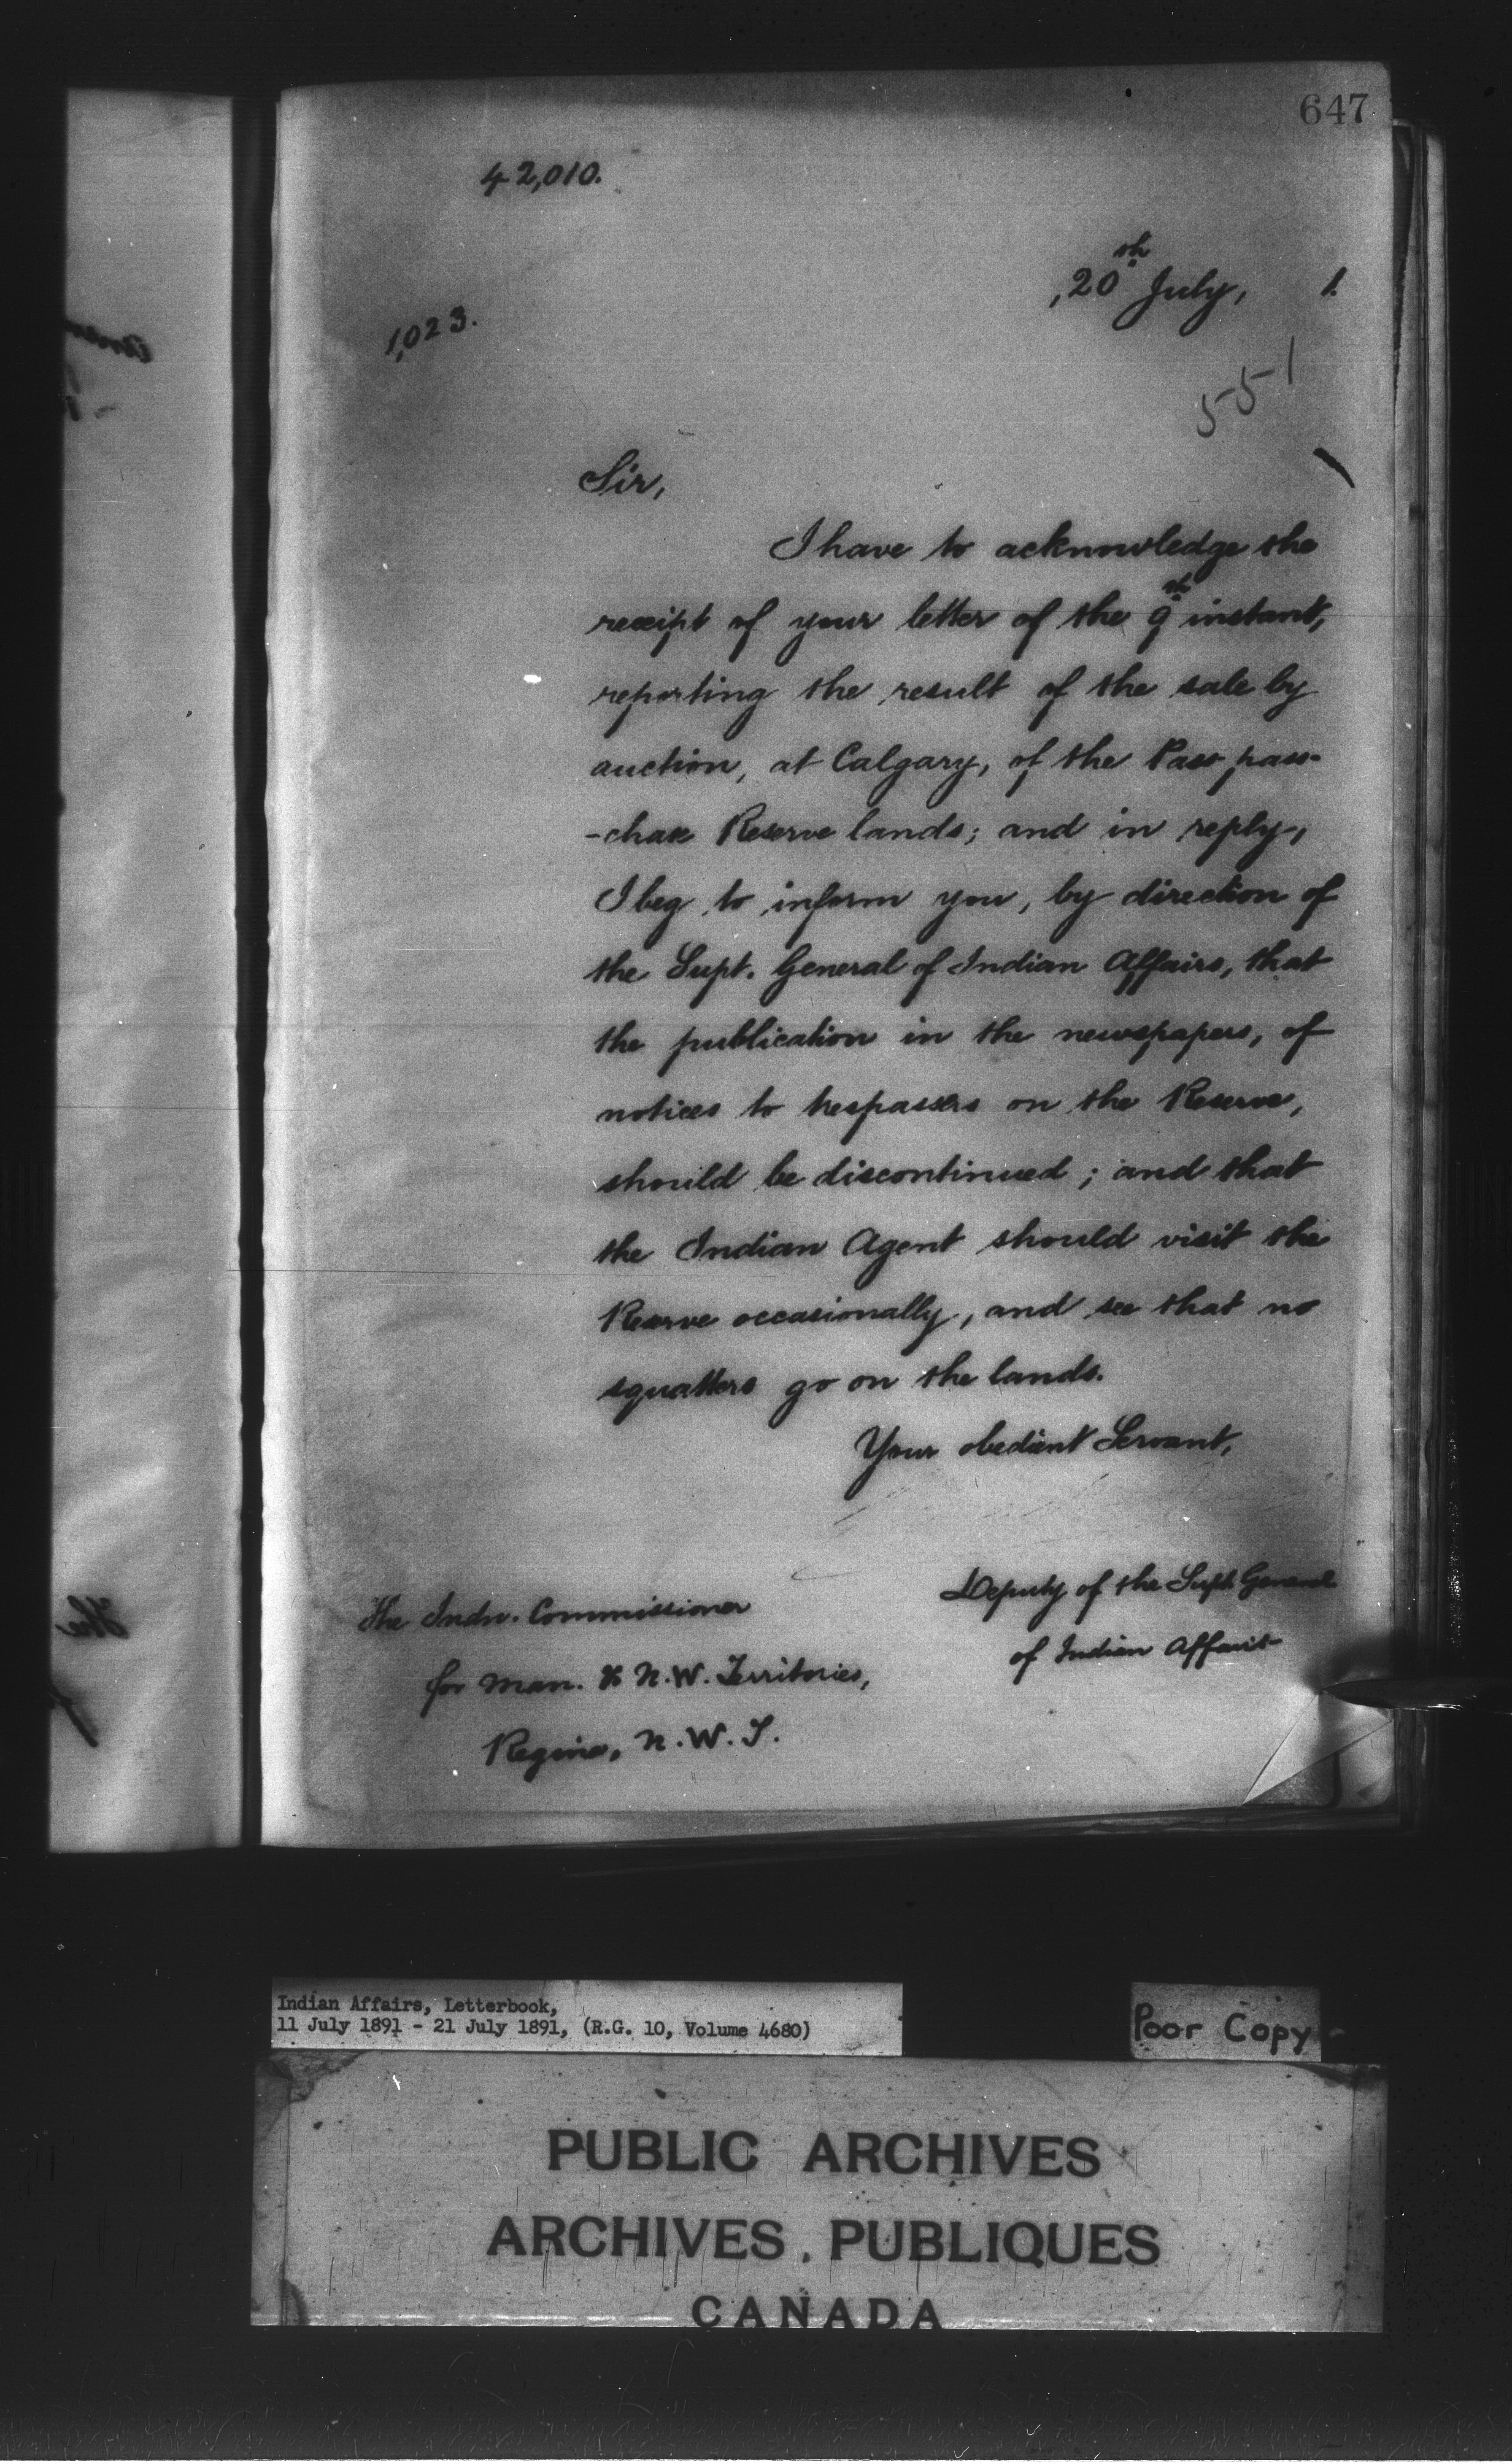 647
42,010.
20th July, 1.
1,023.
551
Sir,
I have to acknowledge the
receipt of your letter of the 9th instant,
reporting the result of the sale by
auction, at Calgary, of the Pass pass-
-chase Reserve lands; and in reply,
I beg to inform you, by direction of
the Supt. General of Indian Affairs, that
the publication in the newspapers, of
notices to trespassers on the Reserve,
should be discontinued; and that
the Indian Agent should visit the
Reserve occasionally, and see that no
squatters go on the lands.
Your obedient Servant,
Deputy of the Supt General
of Indian Affairs
The Indn. Commissioner
for Man. & N.W. Territories,
Regina, N.W.T.
Indian Affairs, Letterbook,
11 July 1891 - 21 July 1891, (R.G. 10, Volume 4680)
Poor Copy
PUBLIC ARCHIVES
ARCHIVES PUBLIQUES
CANADA